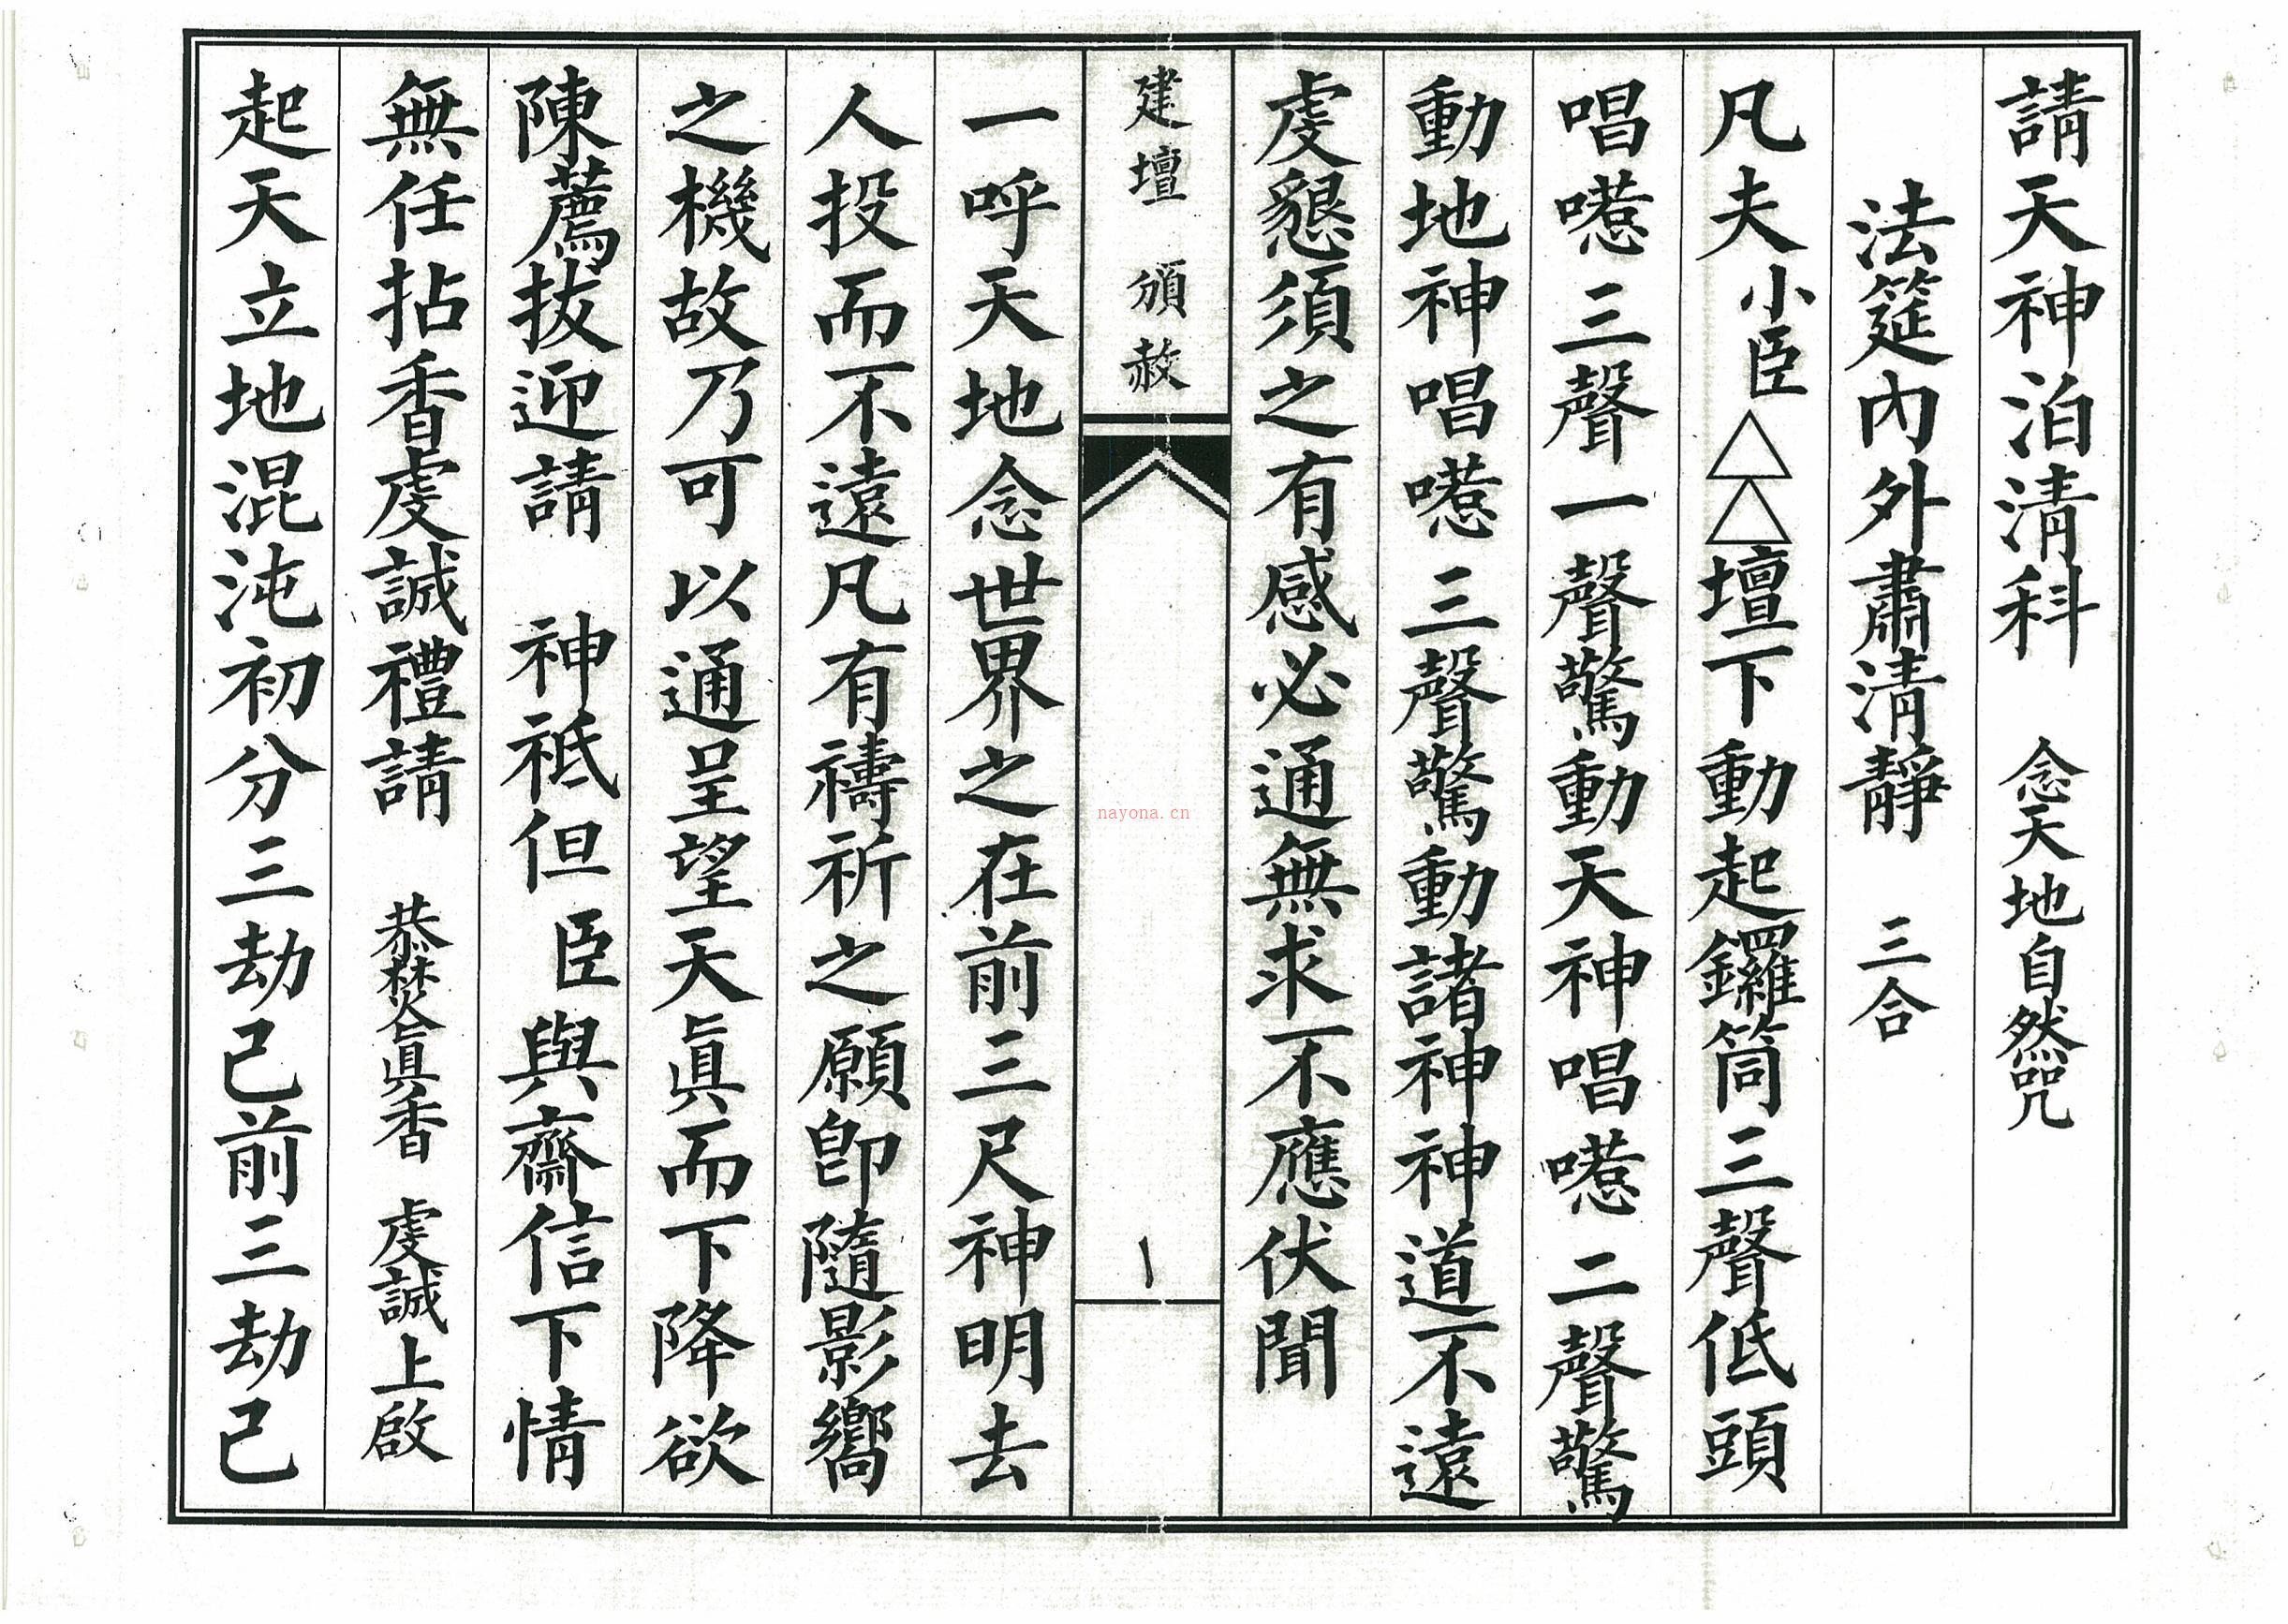 請天神泊清科 念天地自然咒
法筵內外肅清靜 三合
凡夫小臣△△壇下動起鑼筒三聲低頭
唱嚿三聲一聲驚動天神唱嚿二聲驚
動地神唱嚿三聲驚動諸神神道不遠
虔懇須之有感必通無求不應伏聞
建壇 頒赦
一
nayona.cn
一呼天地念世界之在前三尺神明去
人投而不遠凡有禱祈之願卽隨影嚮
之機故乃可以通呈望天眞而下降欲
陳薦拔迎請 神祇但臣與齋信下情
無任拈香虔誠禮請 恭焚眞香 虔誠上啟
起天立地混沌初分三劫己前三劫己